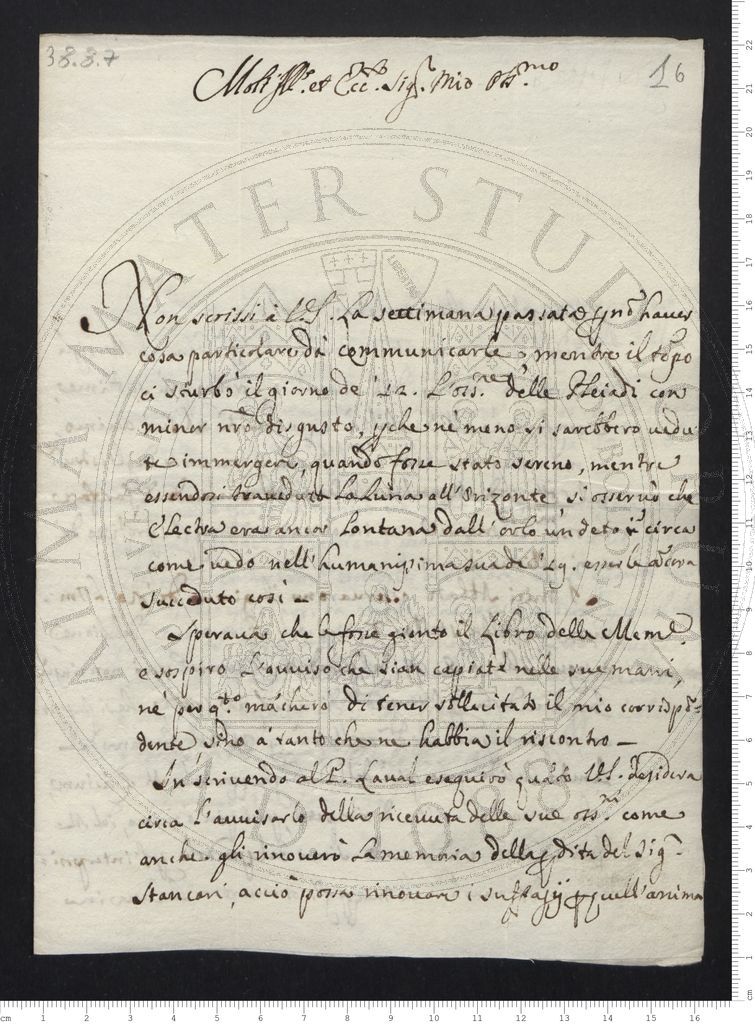 38.3.7
16
Molt Ill.re et Ecc.mo Sig.r Mio Oss.mo
Non scrissi à V.S. La settimana passata non haver
cosa particolare dà communicarle, mentre il tẽpo
ci sturbò il giorno de' 12. L'oss.ne delle Pleiadi con
minor nr̃o disgusto, che nè meno si sarebbero vedu-
te immergere, quando fosse stato sereno, mentre
essendosi traveduta La Luna all'Orizonte si osservò che
Electra era ancor lontana dall'orlo un deto in circa
come vedo nell'humanissima sua de' 29. esserle ãcora
succeduto così –
Sperava che le fosse gionto il Libro delle Mem.e,
e sospiro L'avviso che sian capitate nelle sue mani,
nè per q.to mãcherò di tener sollecitato il mio corrispõ-
dente sino à tanto che ne habbia il riscontro –
In scrivendo al P. Laval eseguirò quãto V.S. desidera
circa l'avvisarlo della ricevuta delle sue oss.ni come
anche gli rinoverò La memoria della perdita del Sig.r
Stancari, acciò possa rinovare i suffragij per quell'anima
ALMA MATER STUDIORUM
A.D. 1088